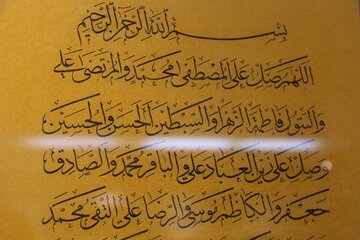 بسم الله الرحمن الرحیم
اللهم صل علی المصطفی محمد و المرتضی علی
و البتول فاطمة الزهرا و السبطین الحسن و الحسین
و صل علی زین العباد علی و الباقر محمد و الصادق
جعفر و الکاظم موسی و الرضا علی التقی محمد